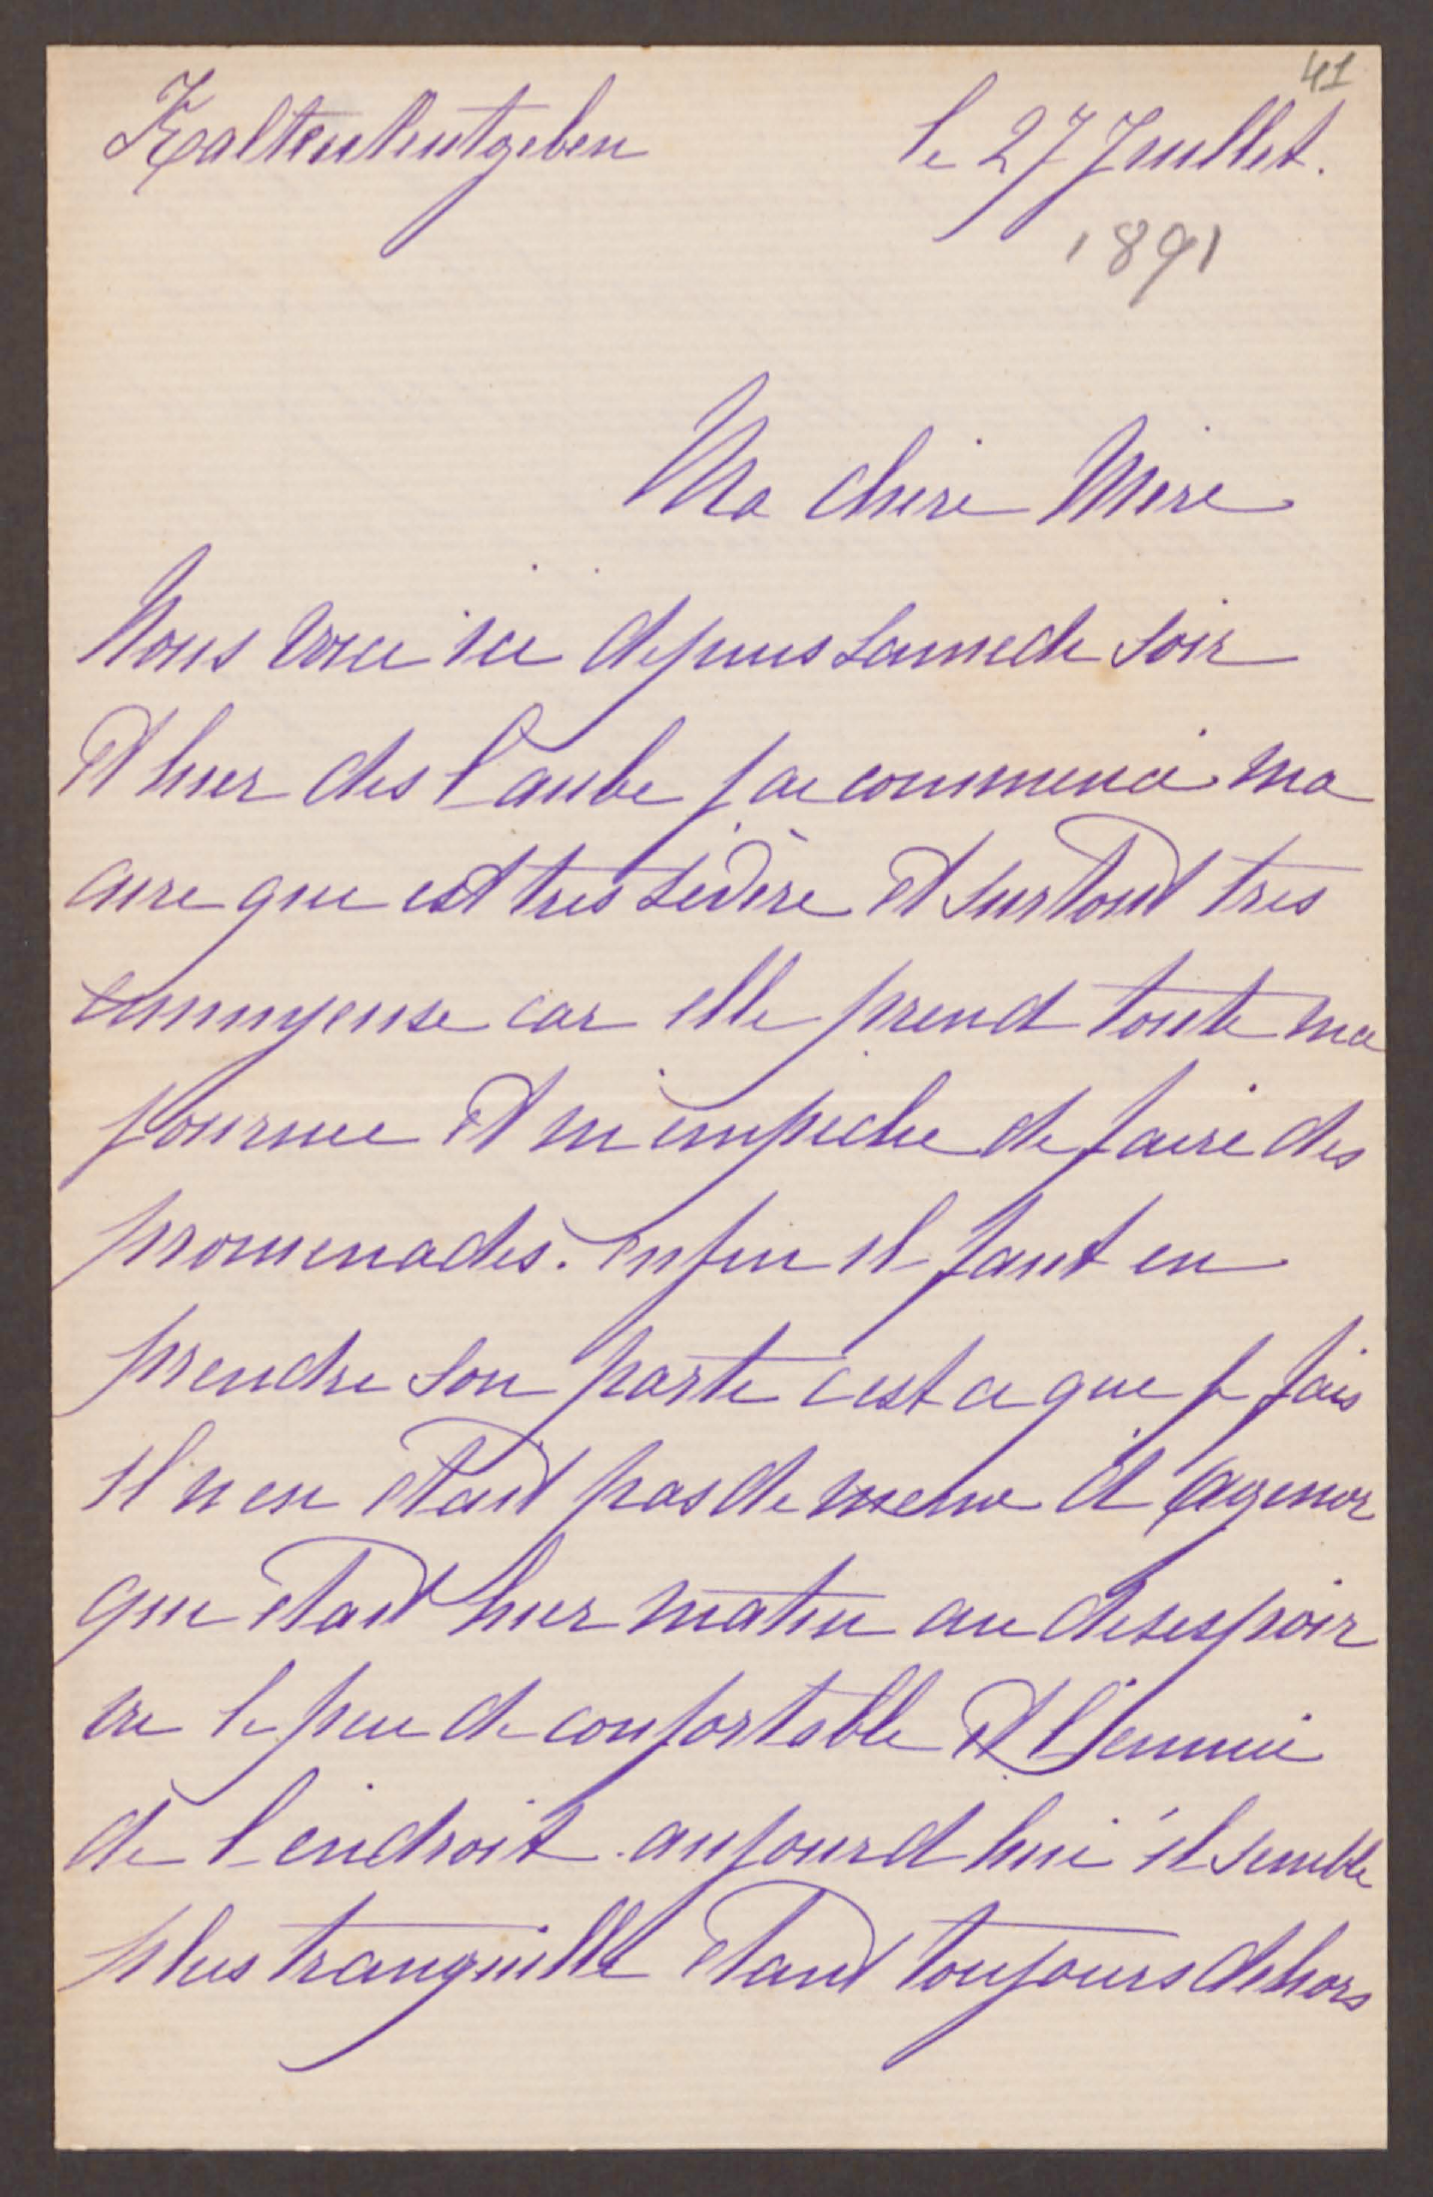 41
Kaltenleutgeben le 27 Juillet.
1891
Ma chere Mère
Nous voici ici depuis Samedi soir
Et hier des l'aube j'ai commencé ma
cure qui est tres sévère Et surtout tres
ennuyeuse car elle prend toute ma
journee Et m'empeche de faire des
promenades. enfin il faut en
prendre son parti c'est ce que je fais
il n en etait pas de meme d'Agenor
qui etait hier matin au desespoir
vu le peu de confortable Et l'ennui
de l'endroit aujourd hui il semble
plus tranquille Etant toujours dehors